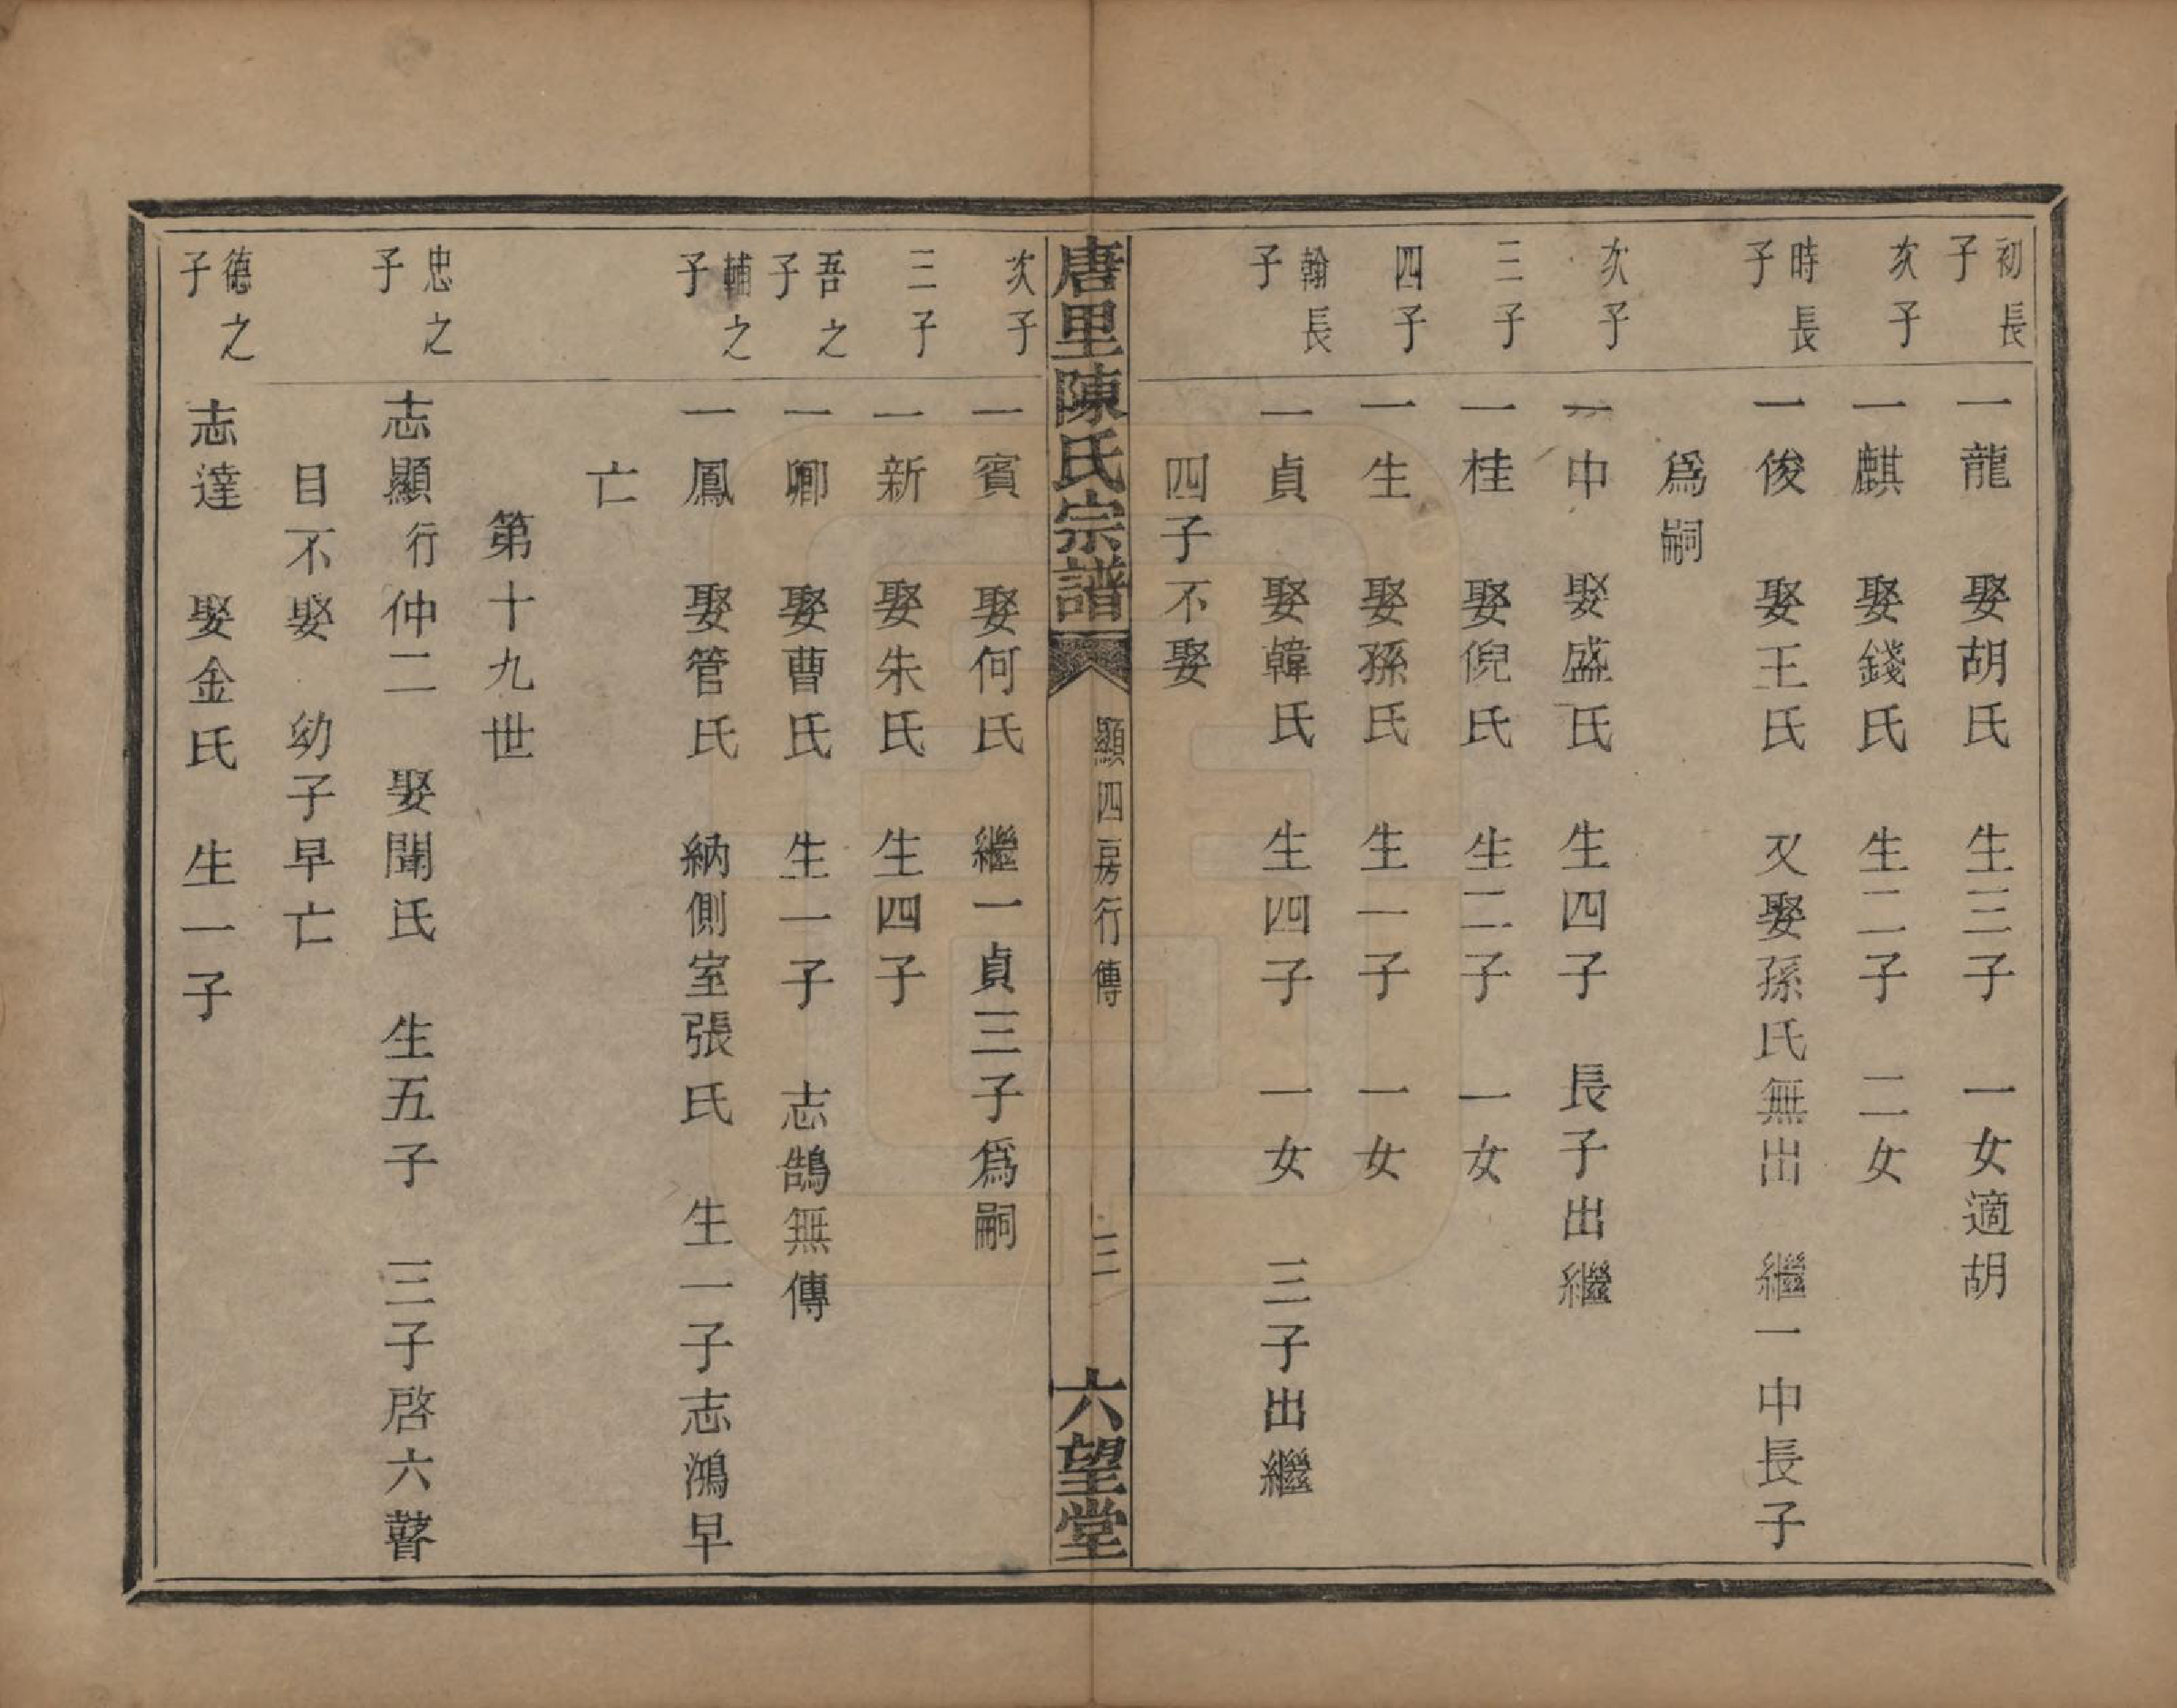 初長子
一龍　娶胡氏　生三子　一女適胡
次子
一麒　娶錢氏　生二子　二女
時長子
一俊　娶王氏　又娶孫氏無出　繼一中長子
爲嗣
次子
一中　娶盛氏　生四子　長子出繼
三子
一桂　娶倪氏　生二子　一女
四子
一生　娶孫氏　生一子　一女
翰長子
一貞　娶韓氏　生四子　一女　三子出繼
四子不娶
唐里陳氏宗譜　顯四房行傳　三　六望堂
次子
一賓　娶何氏　繼一貞三子爲嗣
三子
一新　娶朱氏　生四子
吾之子
一卿　娶曹氏　生一子　志鵠無傳
輔之子
一鳳　娶管氏　納側室張氏　生一子志鴻早
亡
第十九世
忠之子
志顯行仲二　娶聞氏　生五子　三子啓六瞽
目不娶　幼子早亡
德之子
志達　娶金氏　生一子